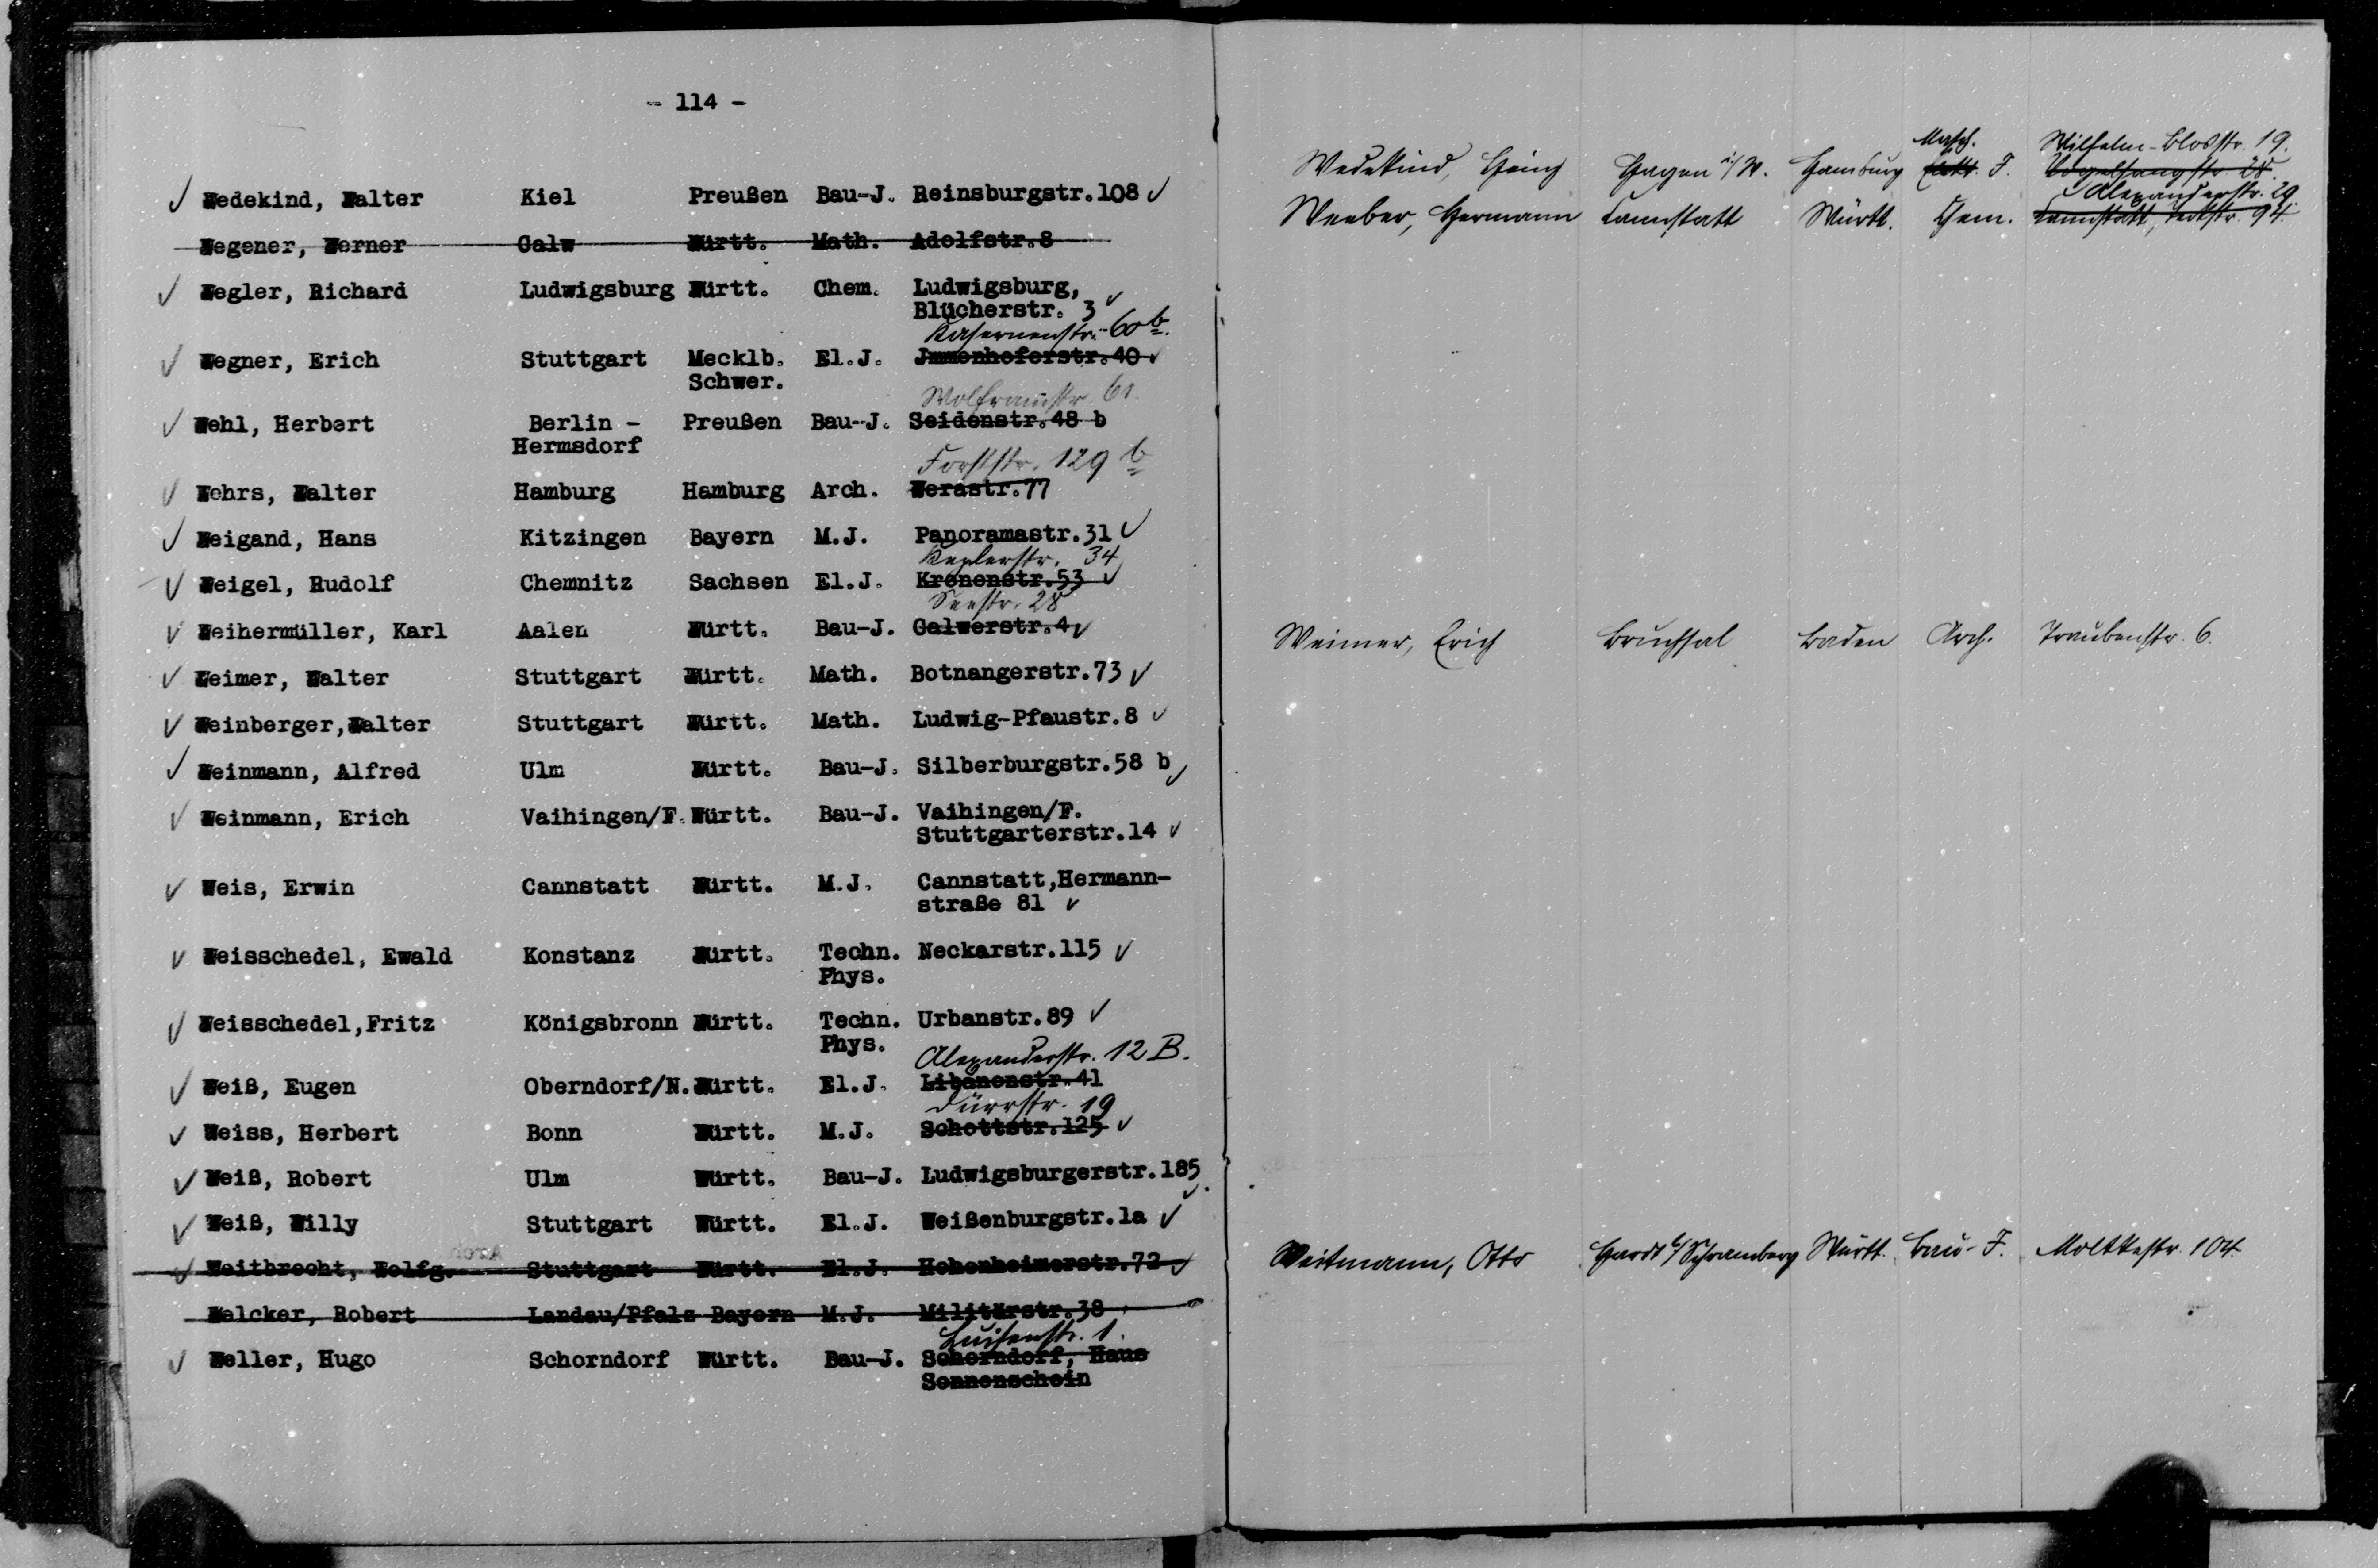 - 114 -
Wedekind, Walter Kiel Preußen Bau-J. Reinsburgstr.108
Wegener, Werner Calw Württ. Math. Adolfstr.8
Wegler, Richard Ludwigsburg Württ. Chem. Ludwigsburg,
Blücherstr. 3
Kasernenstr. 60 b.
Wegner, Erich Stuttgart Mecklb. El.J. Jmmenhoferstr.40
Schwer.
Wolframstr. 61
Wehl, Herbert Berlin - Preußen Bau-J. Seidenstr.48 b
Hermsdorf
Forststr. 129 b
Wehrs, Walter Hamburg Hamburg Arch. Werastr.77
Weigand, Hans Kitzingen Bayern M.J. Panoramastr.31
Keplerstr. 34
Weigel, Rudolf Chemnitz Sachsen El.J. Kronenstr.53
Seestr. 28
Weihermüller, Karl Aalen Württ. Bau-J. Calwerstr.4
Weimer, Walter Stuttgart Württ. Math. Botnangerstr.73
Weinberger,Walter Stuttgart Württ. Math. Ludwig-Pfaustr.8
Weinmann, Alfred Ulm Württ. Bau-J. Silberburgstr.58 b
Weinmann, Erich Vaihingen/F. Württ. Bau-J. Vaihingen/F.
Stuttgarterstr.14
Weis, Erwin Cannstatt Württ. M.J. Cannstatt,Hermann-
straße 81
Weisschedel, Ewald Konstanz Württ. Techn. Neckarstr.115
Phys.
Weisschedel,Fritz Königsbronn Württ. Techn. Urbanstr.89
Phys.
Alexanderstr. 12 B.
Weiß, Eugen Oberndorf/N. Württ. El.J. Libanonstr.41
Dürrstr. 19
Weiss, Herbert Bonn Württ. M.J. Schottstr.125
Weiß, Robert Ulm Württ. Bau-J. Ludwigsburgerstr.185
Weiß, Willy Stuttgart Württ. El.J. Weißenburgstr.1a
Weitbrecht, Wolfg. Stuttgart Württ. El.J. Hohenheimerstr.72
Welcker, Robert Landau/Pfalz Bayern M.J. Militärstr.38
Luisenstr. 1.
Weller, Hugo Schorndorf Württ. Bau-J. Schorndorf, Haus
Sonnenschein
Masch. Wilhelm-Blosstr. 19.
Wedekind, Heinz Hagen i/W. Hamburg Elektr. J. Vogelsangstr. 28.
Alexanderstr. 29.
Weeber, Hermann Cannstatt Württ. Chem. Cannstatt, Teckstr. 94
Weimer, Erich Bruchsal Baden Arch. Traubenstr. 6.
Weitmann, Otto Hardt b/Schramberg Württ. Bau-J. Moltkestr. 104.